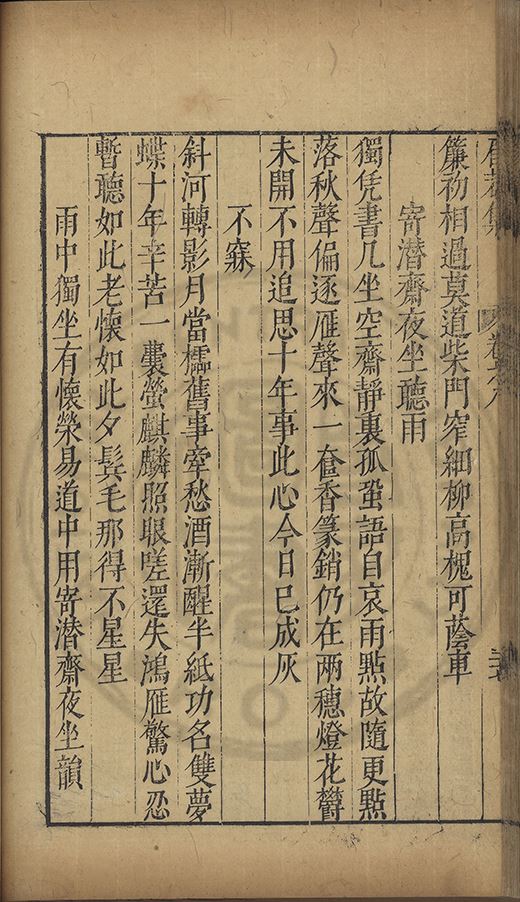 卷六
簾初相過莫道柴門窄細柳高槐可蔭車
寄潛齋夜坐聽雨
獨凭書几坐空齋靜裏孤蛩語自哀雨點故隨更點
落秋聲偏逐雁聲來一奩香篆銷仍在兩穗燈花鬱
未開不用追思十年事此心今日已成灰
不寐
斜河轉影月當櫺舊事牽愁酒漸醒半紙功名雙夢
蝶十年辛苦一囊螢麒麟照眼嗟還失鴻雁驚心忍
暫聽如此老懷如此夕鬂毛那得不星星
雨中獨坐有懷榮易道中用寄潛齋夜坐韻